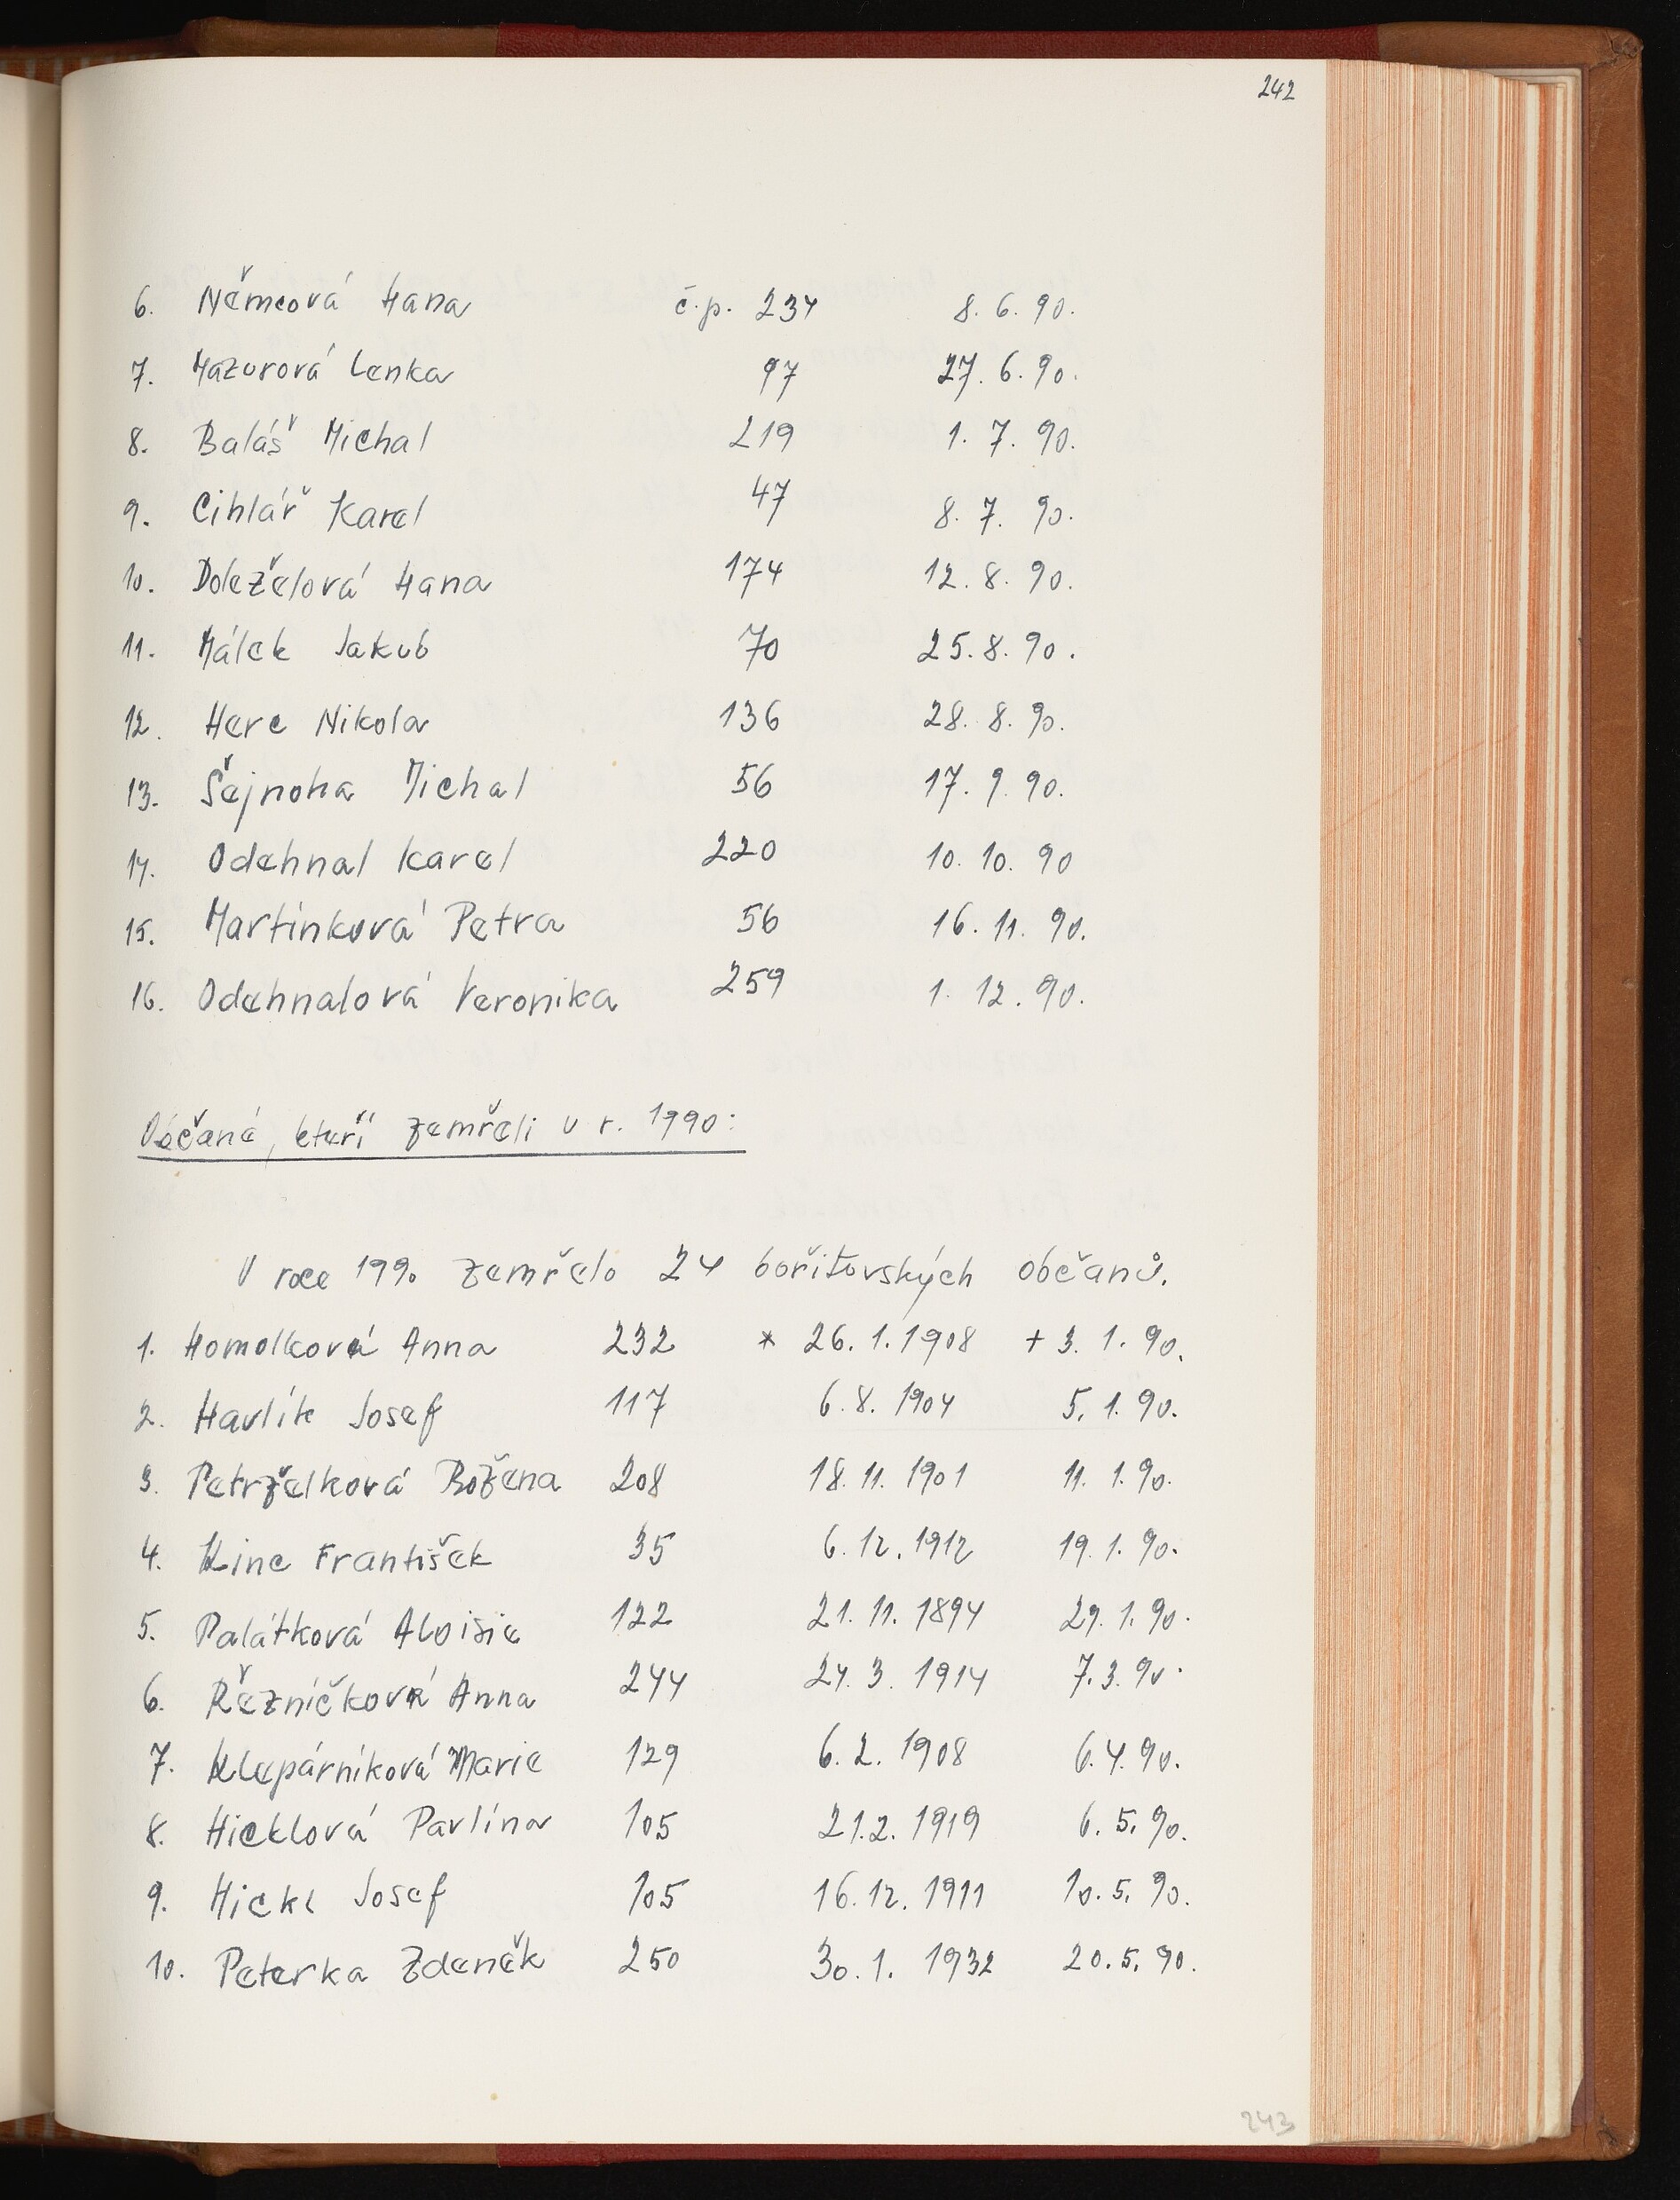 242
6. Němcová Hana č.p. 234 8. 6. 90.
7. Mazurová Lenka 97 27. 6. 90.
8. Baláš Michal 219 1. 7. 90.
9. Cihlář Karel 47 8. 7. 90.
10. Doleželová Hana 174 12. 8. 90.
11. Málek Jakub 70 25. 8. 90.
12. Herc Nikola 136 28. 8. 90.
13. Šejnoha Michal 56 17. 9. 90.
14. Odehnal Karel 220 10. 10. 90
15. Martinková Petra 56 16. 11. 90.
16. Odehnalová Veronika 259 1. 12. 90.
Občané, kteří zemřeli v r. 1990:
V roce 1990 zemřelo 24 bořitovských občanů.
1. Homolková Anna 232 * 26. 1. 1908 + 3. 1. 90.
2. Havlík Josef 117 6. 8. 1904 5. 1. 90.
3. Petrželková Božena 208 18. 11. 1901 11. 1. 90.
4. Kinc František 35 6. 12. 1912 19. 1. 90.
5. Palátková Aloisie 122 21. 11. 1894 29. 1. 90.
6. Řezníčková Anna 244 24. 3. 1914 7. 3. 90.
7. Klepárníková Marie 129 6. 2. 1908 6. 4. 90.
8. Hicklová Pavlína 105 21. 2. 1919 6. 5. 90.
9. Hickl Josef 105 16. 12. 1911 10. 5. 90.
10. Peterka Zdeněk 250 30. 1. 1932 20. 5. 90.
243